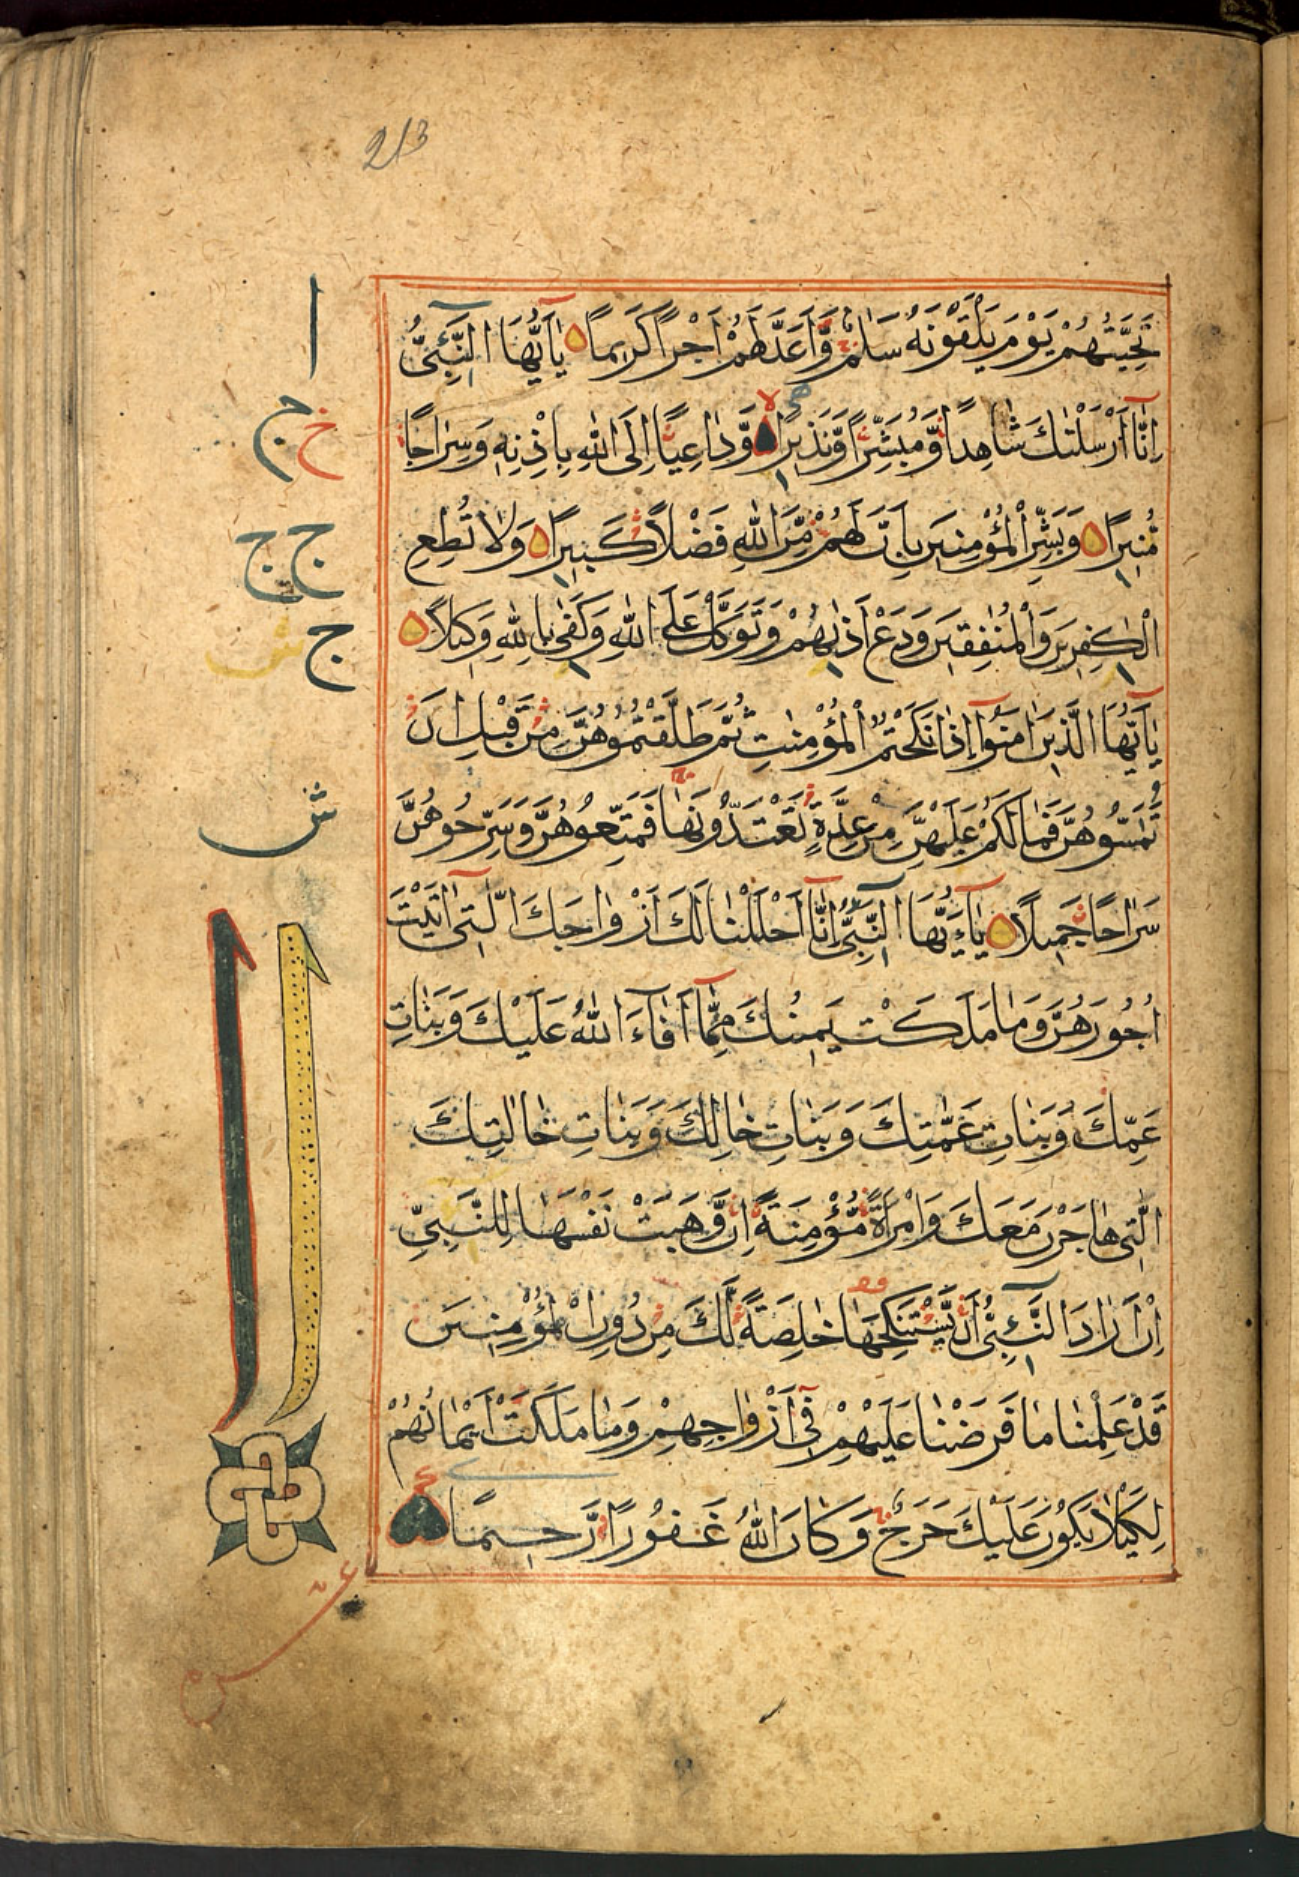 213
تَحِيَّتُهُمْ يَوْمَ يَلْقَوْنَهُ سَلٰمٌ وَّاَعَدَّ لَهُمْ اَجْرًا كَرِيمًا يٰاَيُّهَا النَّبِىُّ
اِنَّا اَرْسَلْنٰكَ شَاهِدًا وَّمُبَشِّرًا وَّنَذِيرًا وَّدَاعِيًا اِلَى اللهِ بِاِذْنِهِ وَسِرَاجًا
مُّنِيرًا وَبَشِّرِ الْمُؤْمِنِينَ بِاَنَّ لَهُمْ مِّنَ اللهِ فَضْلًا كَبِيرًا وَلَا تُطِعِ
الْكٰفِرِينَ وَالْمُنٰفِقِينَ وَدَعْ اَذٰىهُمْ وَتَوَكَّلْ عَلَى اللهِ وَكَفٰى بِاللهِ وَكِيلًا
يٰاَيُّهَا الَّذِينَ اٰمَنُوا اِذَا نَكَحْتُمُ الْمُؤْمِنٰتِ ثُمَّ طَلَّقْتُمُوهُنَّ مِنْ قَبْلِ اَنْ
تَمَسُّوهُنَّ فَمَا لَكُمْ عَلَيْهِنَّ مِنْ عِدَّةٍ تَعْتَدُّونَهَا فَمَتِّعُوهُنَّ وَسَرِّحُوهُنَّ
سَرَاحًا جَمِيلًا يٰاَيُّهَا النَّبِىُّ اِنَّا اَحْلَلْنَا لَكَ اَزْوَاجَكَ الّٰتِى اٰتَيْتَ
اُجُورَهُنَّ وَمَا مَلَكَتْ يَمِينُكَ مِمَّا اَفَاءَ اللهُ عَلَيْكَ وَبَنَاتِ
عَمِّكَ وَبَنَاتِ عَمّٰتِكَ وَبَنَاتِ خَالِكَ وَبَنَاتِ خَالٰتِكَ
الّٰتِى هَاجَرْنَ مَعَكَ وَامْرَاَةً مُّؤْمِنَةً اِنْ وَّهَبَتْ نَفْسَهَا لِلنَّبِىِّ
اِنْ اَرَادَ النَّبِىُّ اَنْ يَّسْتَنْكِحَهَا خَالِصَةً لَّكَ مِنْ دُونِ الْمُؤْمِنِينَ
قَدْ عَلِمْنَا مَا فَرَضْنَا عَلَيْهِمْ فِى اَزْوَاجِهِمْ وَمَا مَلَكَتْ اَيْمَانُهُمْ
لِكَيْلَا يَكُونَ عَلَيْكَ حَرَجٌ وَكَانَ اللهُ غَفُورًا رَّحِيمًا
ا
ج خ
ج ج
ج ش
ش